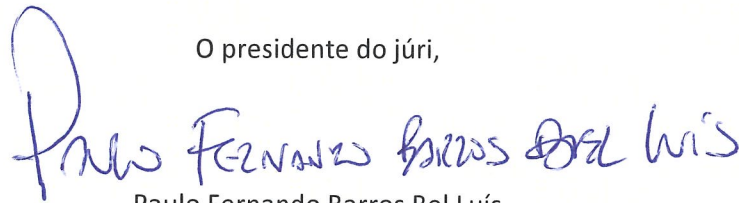 O presidente do júri,
Paulo Fernando Barros Bel Luís
Paulo Fernando Barros Bel Luís